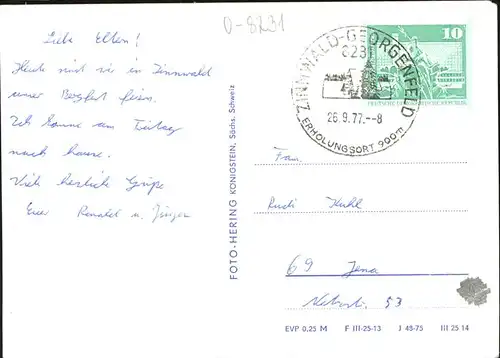 0-8231
Liebe Eltern!
Heute sind wir in Zinnwald
unser Bergfest feiern.
Ich komme am Freitag
nach hause.
Viele herzliche Grüße
Eure Renald u. Jürgen
FOTO-HERING KÖNIGSTEIN, Sächs. Schweiz
ZINNWALD-GEORGENFELD
8231
26.9.77.-8
ERHOLUNGSORT 900 m
10
DEUTSCHE DEMOKRATISCHE REPUBLIK
Fam.
Rudi Kuhl
69 Jena
53
EVP 0,25 M F III-25-13 J 45-75 III 25 14